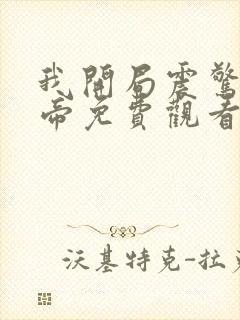 我開局震驚
帝免費觀看
沃基特克-拉